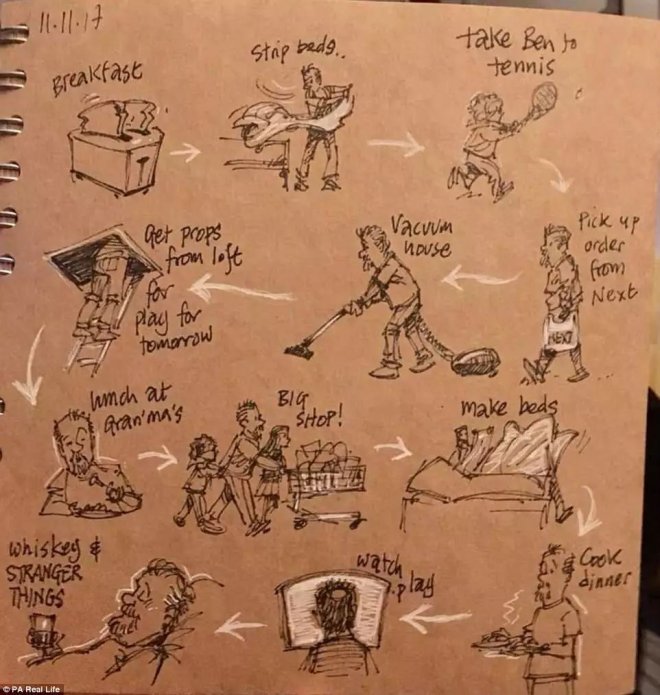 11.11.17
Breakfast
Strip beds..
take Ben to
tennis
Pick up
order
from
Next
NEXT
Vacuum
house
Get props
from loft
for
play for
tomorrow
lunch at
Gran'ma's
BIG
SHOP!
make beds
Cook
dinner
watch
play
whiskey &
STRANGER
THINGS
© PA Real Life